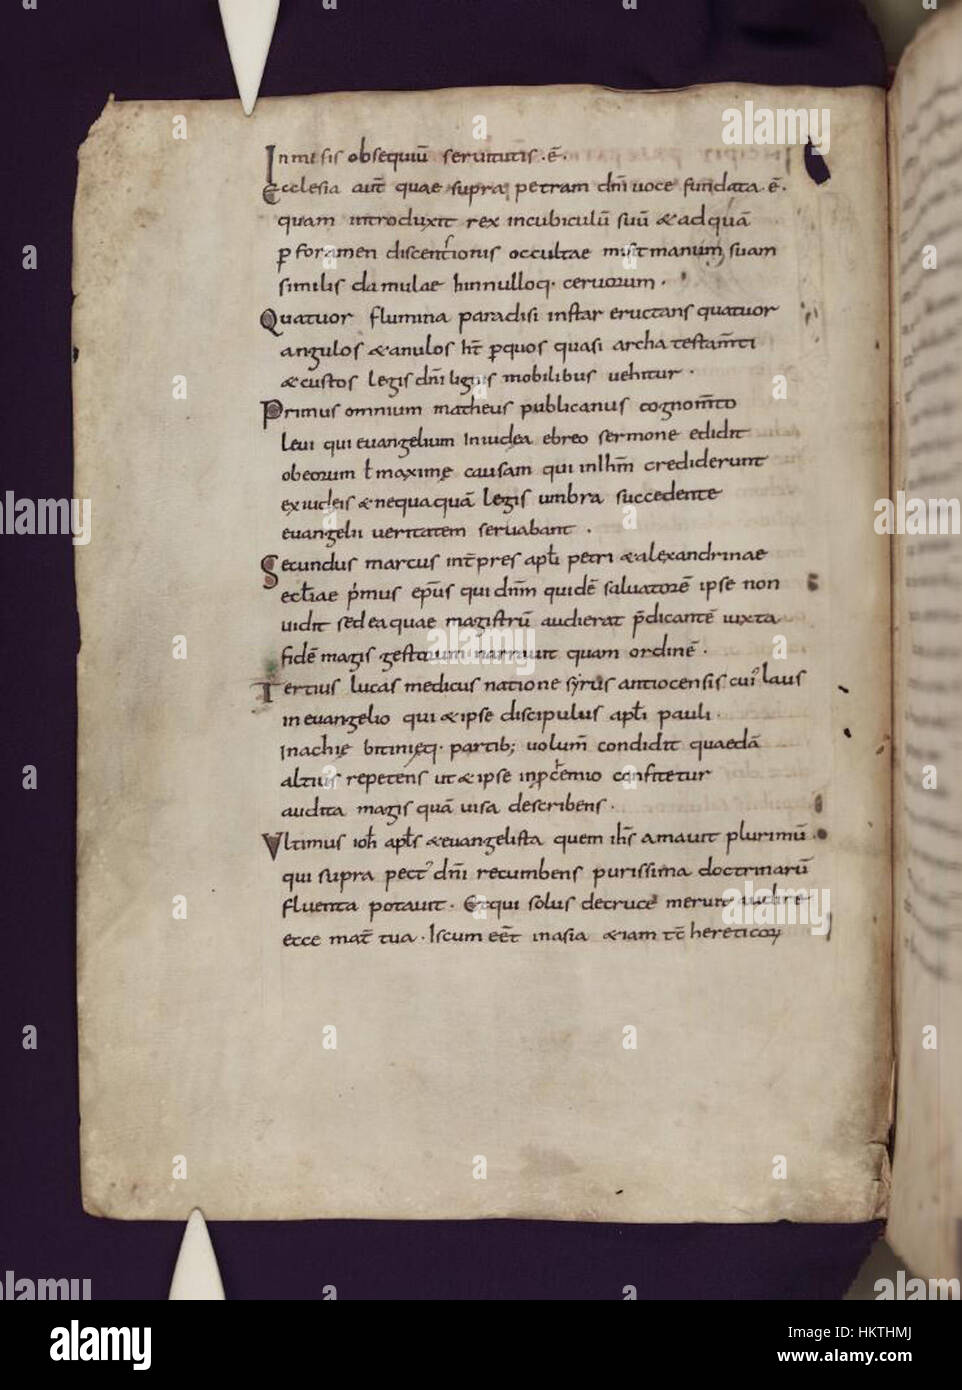 Inmisis obsequiū seruitutis .ē.
Ecclesia aut̄ quae supra petram dn̄i uoce fundata .ē.
quam introduxit rex incubiculū suū & ad quā
ꝑ foramen discentionis occultae misit manum suam
similis damulae hinnulloq· ceruorum .
Quatuor flumina paradisi instar eructans quatuor
angulos & anulos ht̄ ꝑquos quasi archa testam̄ti
& custos legis dn̄i lignis mobilibus uehitur .
Primus omnium matheus publicanus cognom̄to
leui qui euangelium Iniudea ebreo sermone edidit
obeorum ł maxime causam qui inIhm̄ crediderunt
exiudeis & nequaquā legis umbra succedente
euangelii ueritatem seruabant .
Secundus marcus int̄pres apłi petri & alexandrinae
ecłiae pᷤmus ep̄us qui dn̄m quidē saluatorē ipse non
uidit sed ea quae magistrū audierat p̄dicantē iuxta
fidē magis gestorum narrauit quam ordinē .
Tertius lucas medicus natione syrus antiocensis cuiꝰ laus
in euangelio qui & ipse discipulus apłi pauli .
Inachię bitinięq· partib; uolum̄ condidit quaedā
altius repetens ut & ipse inproemio confitetur
audita magis quā uisa describens .
Vltimus ioħ apłs & euangelista quem ihs̄ amauit plurimū .
qui supra pectꝰ dn̄i recumbens purissima doctrinarū
fluenta potauit . Et qui solus decruce meruit audire
ecce mat̄ tua . Iscum eēt inasia &iam tc̄ hereticoꝝ
alamy
Image ID: HKTHMJ
www.alamy.com